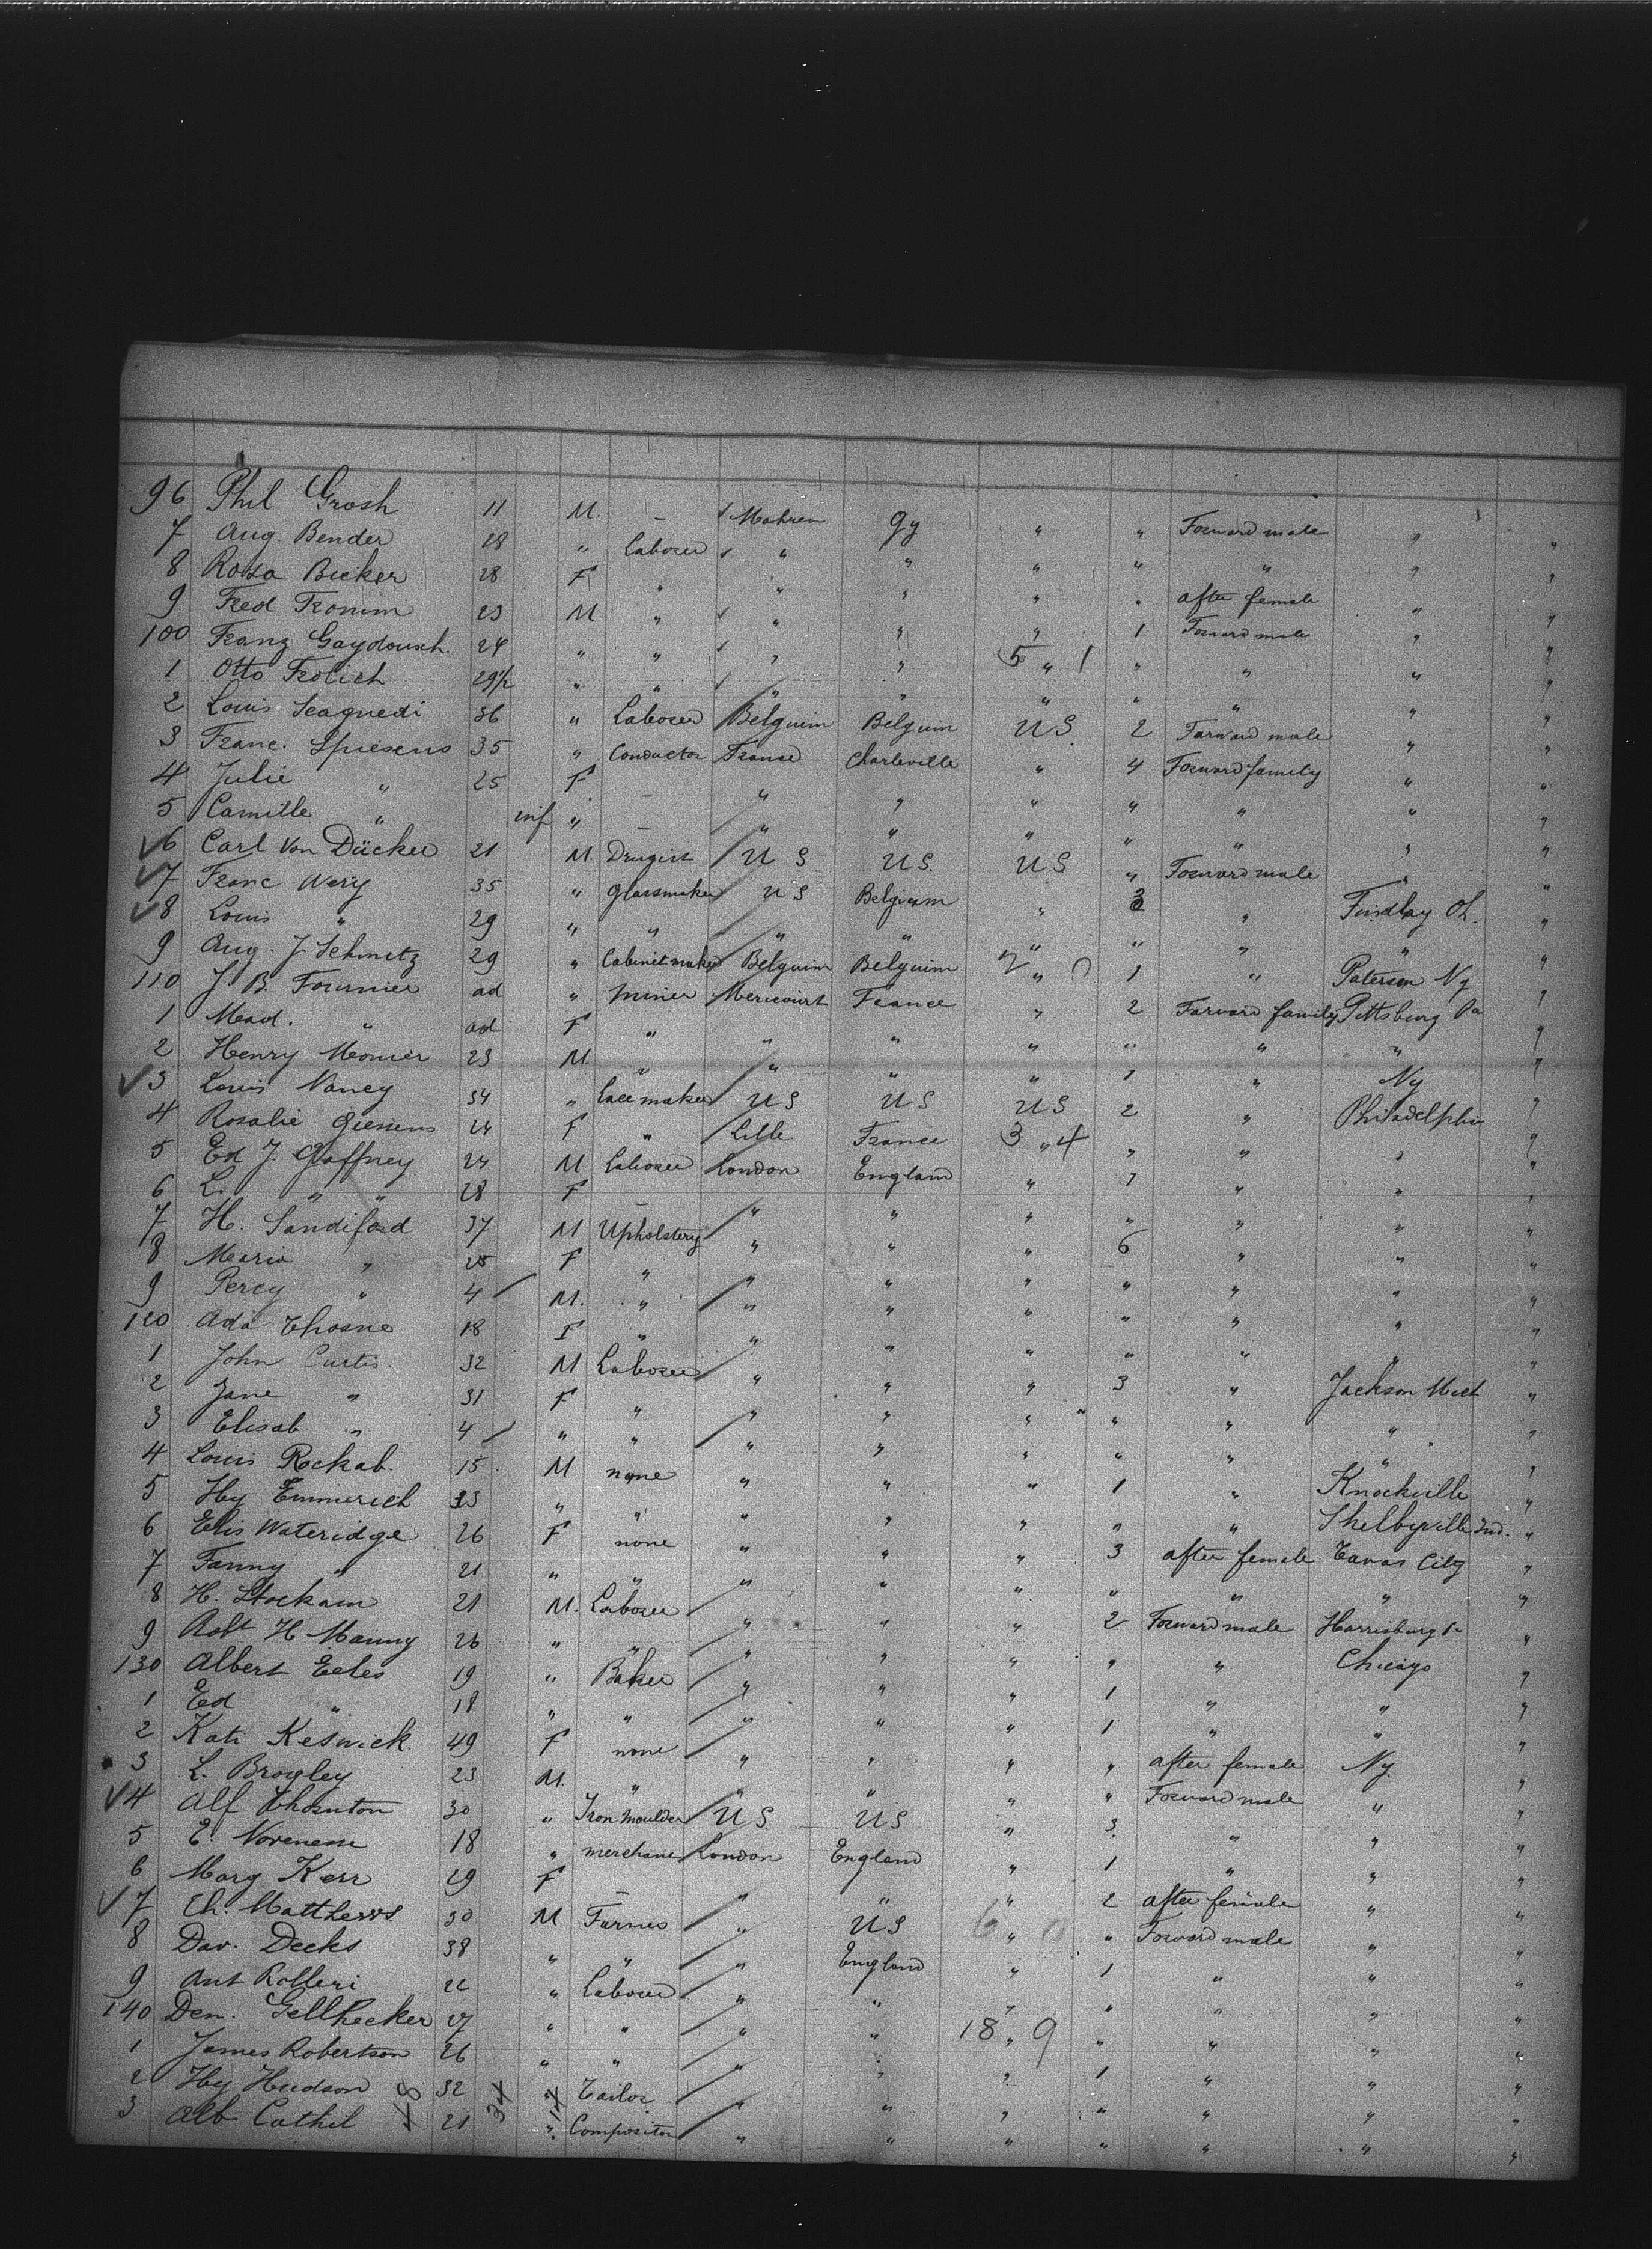 96 Phil Grosh 11 M. – Mahren Gy " " Forward male " "
7 Aug. Bender 28 " Laborer " " " " " " "
8 Rosa Bicker 28 F " " " " " after female " "
9 Fred Fromm 23 M " " " " 1 Forward male " "
100 Franz Gaydousch. 24 " " " " 5 " 1 " " " "
1 Otto Frolich 29½ " " " " " " " " "
2 Louis Seagnedi 36 " Laborer Belguim Belguim US 2 Forward male " "
3 Franc. Spiesens 35 " Conductor France Charleville " 4 Forward family " "
4 Julie " 25 F – " " " " " " "
5 Camille " inf " – " " " " " " "
6 Carl Von Dücker 21 M Drugist US US. US " Forward male " "
7 Franc Wery 35 " Glassmaker US Belgium " 2 " Findlay Oh. "
8 Louis " 29 " " " " " " " " "
9 Aug. J. Schmitz 29 " Cabinetmaker Belguim Belguim 2 " 0 1 " Paterson NJ "
110 J. B. Fournier ad " miner Mericourt France " 2 Forward family Pittsburg Pa "
1 Mad. " ad F " " " " " " " "
2 Henry Monier 23 M. " " " " 1 " Ny "
3 Louis Nancy 34 " Lace maker US US US 2 " Philadelphia "
4 Rosalie Giesiens 24 F " Lille France 3 " 4 " " " "
5 Ed J. Gaffney 24 M Laborer London England " 1 " " "
6 L. " " 28 F – " " " " " " "
7 H. Sandiford 37 M Upholstery " " " 6 " " "
8 Maria " 25 F " " " " " " " "
9 Percy " 4 M. " " " " " " " "
120 Ada Thorne 18 F " " " " " " " "
1 John Curtis. 32 M Laborer " " " 3 " Jackson Mich "
2 Jane " 31 F " " " " " " " "
3 Elisab " 4 " " " " " " " " "
4 Louis Rockab. 15 M none " " " 1 " Knockville "
5 Hy Emmerich 23 " " " " " " " Shelbyville Ind. "
6 Elis Wateridge 26 F none " " " 3 after female Tavas City "
7 Fanny " 21 " " " " " " " " "
8 H. Stockam 21 M. Laborer " " " 2 Forward male Harrisburg Pa "
9 Robt H Manny 26 " " " " " " " Chicago "
130 Albert Eeles 19 " Baker " " " 1 " " "
1 Ed " 18 " " " " " 1 " " "
2 Kati Keswick. 49 F none " " " " after female Ny. "
3 L. Brogley 23 M. " " " " " Forward male " "
4 Alf Thornton 30 " Iron moulder US US " 3. " " "
5 E. Novenesse 18 " merchant London England " 1 " " "
6 Marg Kerr 29 F – " " " 2 after female " "
7 Ch. Matthews 30 M Farmer " US 6 " 0 " Forward male " "
8 Dav. Decks 38 " " " England " 1 " " "
9 Ant Rolleri 22 " Laborer " " " " " " "
140 Den. Gellhecker 27 " " " " 18 " 9 " " " "
1 James Robertson 26 " " " " " 1 " " "
2 Hy Hudson 32 " Tailor " " " " " " "
3 Alb Cathil 48 21 34 14 " Compositor " " " " " " "